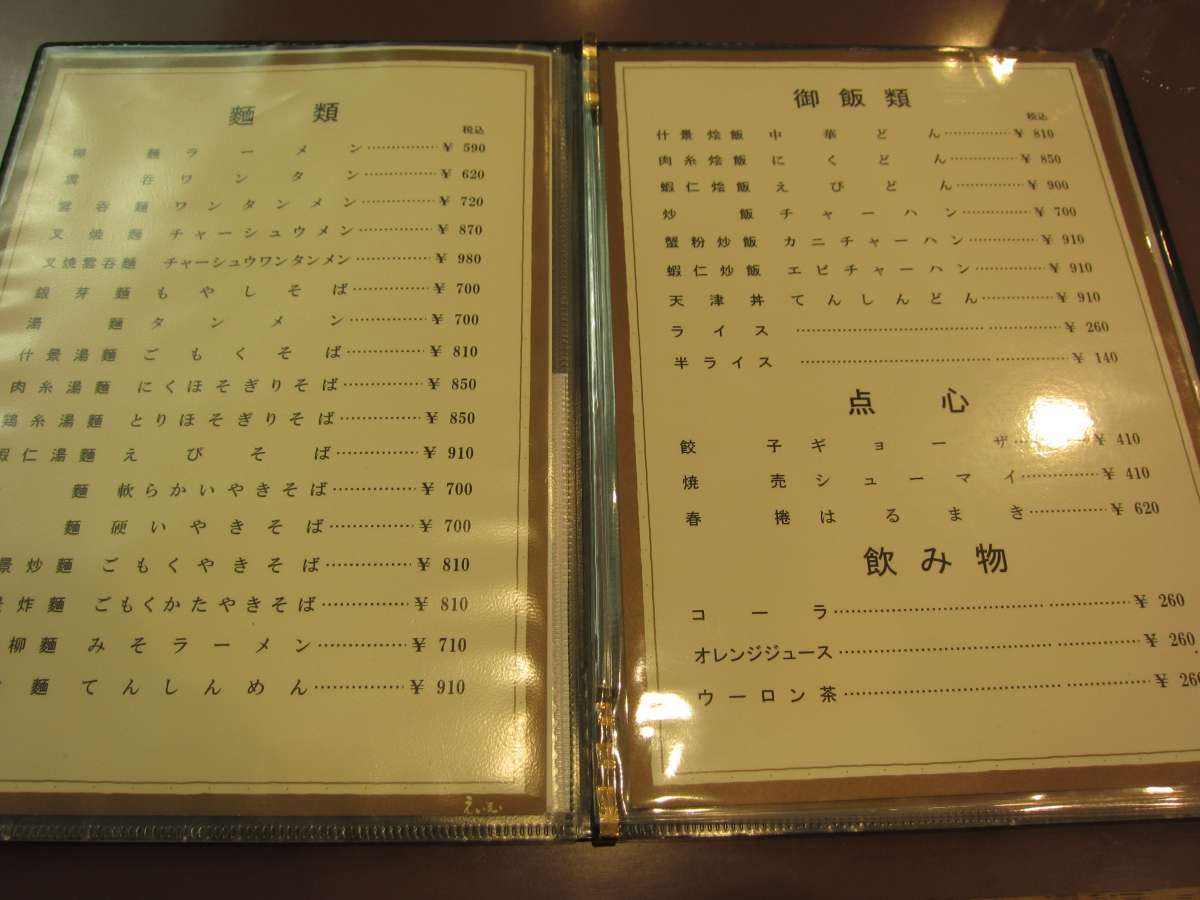 麵類
税込
柳麵ラーメン…………¥ 590
雲呑ワンタン…………¥ 620
雲呑麵ワンタンメン…………¥ 720
叉焼麵チャーシュウメン…………¥ 870
叉焼雲呑麵 チャーシュウワンタンメン…………¥ 980
銀芽麵もやしそば…………¥ 700
湯麵タンメン…………¥ 700
什景湯麵ごもくそば…………¥ 810
肉糸湯麵にくほそぎりそば…………¥ 850
鶏糸湯麵とりほそぎりそば…………¥ 850
蝦仁湯麵えびそば…………¥ 910
麵軟らかいやきそば…………¥ 700
麵硬いやきそば…………¥ 700
景炒麵ごもくやきそば…………¥ 810
炸麵ごもくかたやきそば…………¥ 810
柳麵みそラーメン…………¥ 710
麵てんしんめん…………¥ 910
えいむ
御飯類
税込
什景烩飯中華どん…………¥ 810
肉糸烩飯にくどん…………¥ 850
蝦仁烩飯えびどん…………¥ 900
炒飯チャーハン…………¥ 700
蟹粉炒飯カニチャーハン…………¥ 910
蝦仁炒飯エビチャーハン…………¥ 910
天津丼てんしんどん…………¥ 910
ライス…………¥ 260
半ライス…………¥ 140
点心
餃子ギョーザ…………¥ 410
焼売シューマイ…………¥ 410
春捲はるまき…………¥ 620
飲み物
コーラ…………¥ 260
オレンジジュース…………¥ 260
ウーロン茶…………¥ 260